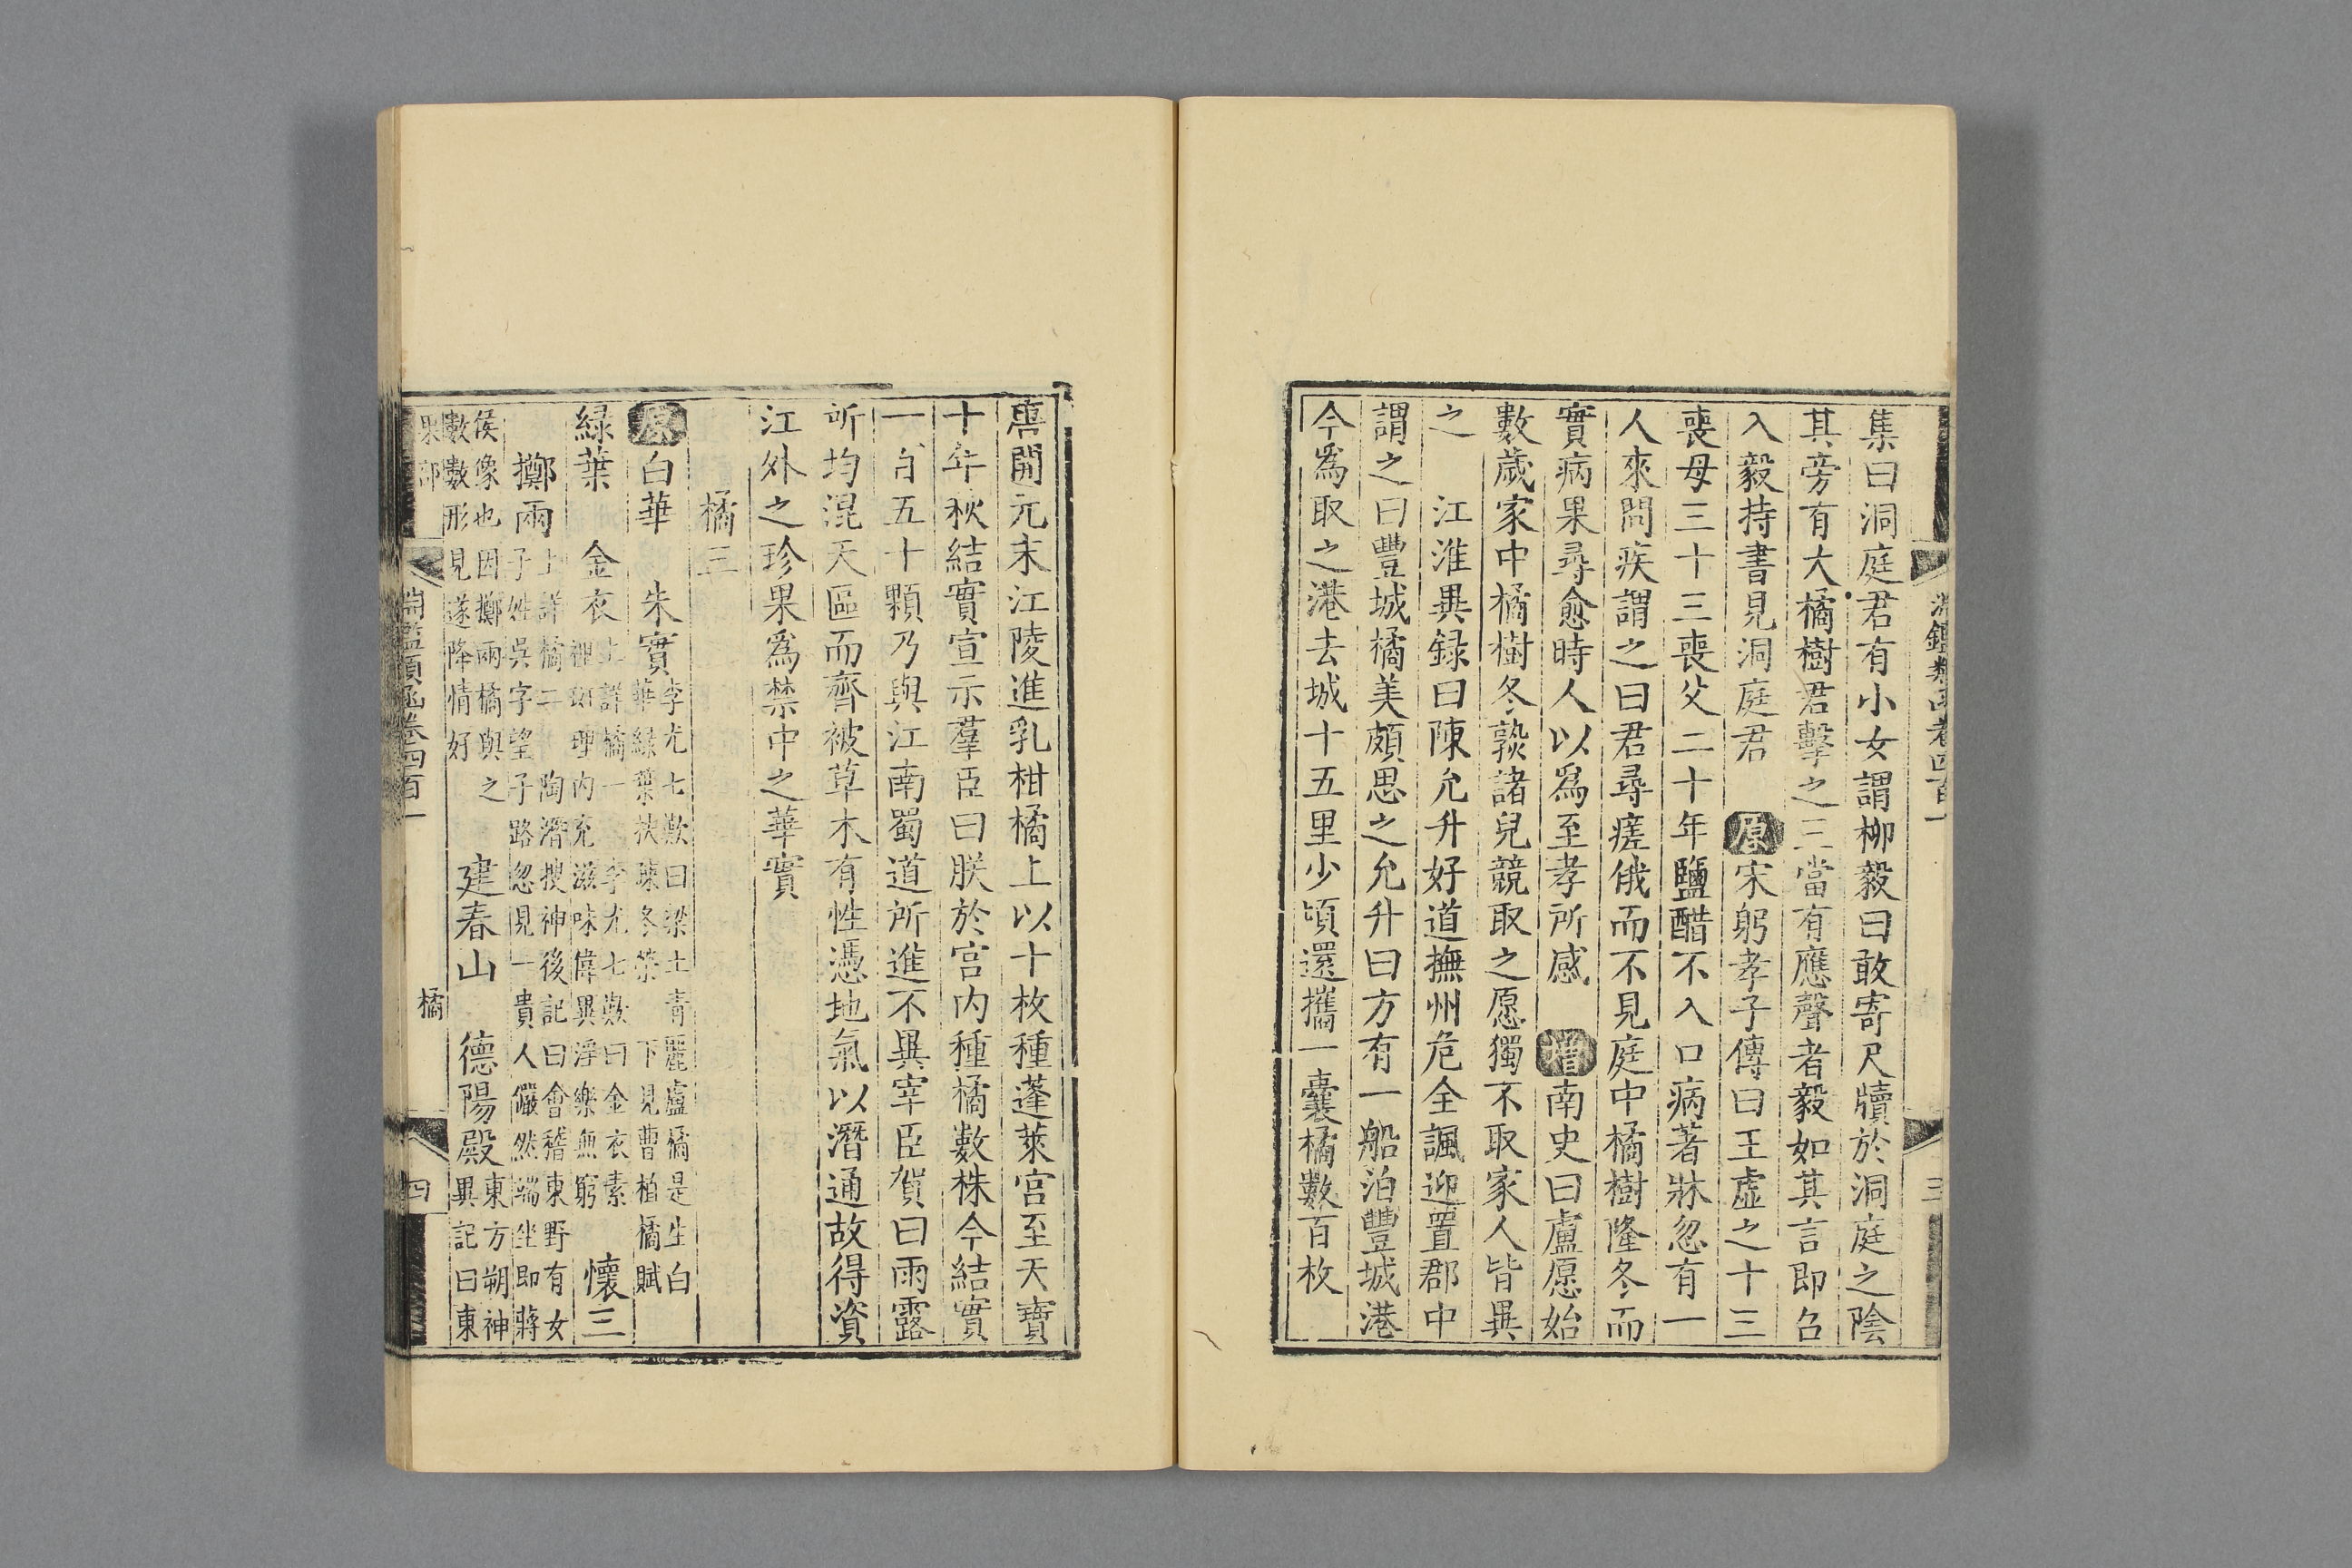 淵鑑類函卷四百一
三
集曰洞庭君有小女謂柳毅曰敢寄尺牘於洞庭之陰
其旁有大橘樹君擊之三當有應聲者毅如其言即召
入毅持書見洞庭君　原宋躬孝子傳曰王虛之十三
喪母三十三喪父二十年鹽醋不入口病著牀忽有一
人來問疾謂之曰君尋瘥俄而不見庭中橘樹隆冬而
實病果尋愈時人以爲至孝所感　增南史曰盧愿始
數歲家中橘樹冬熟諸兒競取之愿獨不取家人皆異
之　江淮異録曰陳允升好道撫州危全諷迎置郡中
謂之曰豐城橘美頗思之允升曰方有一船泊豐城港
今爲取之港去城十五里少頃還攜一囊橘數百枚
唐開元末江陵進乳柑橘上以十枚種蓬萊宮至天寶
十年秋結實宣示羣臣曰朕於宮内種橘數株今結實
一百五十顆乃與江南蜀道所進不異宰臣賀曰雨露
所均混天區而齊被草木有性憑地氣以潛通故得資
江外之珍果爲禁中之華實
橘三
原白華　朱實李尤七歎曰梁土青麗盧橘是生白
華緑葉扶疎冬榮　下見曹植橘賦
緑葉　金衣上詳橘一　李尤七歎曰金衣素
裡班理内充滋味偉異淫樂無窮　懷三
擲兩上詳橘二　陶潛搜神後記曰會稽東野有女
子姓吳字望子路忽見一貴人儼然端坐即蔣
侯像也因擲兩橘與之
數數形見遂降情好　建春山　德陽殿東方朔神
異記曰東
果部
橘
淵鑑類函卷四百一
四